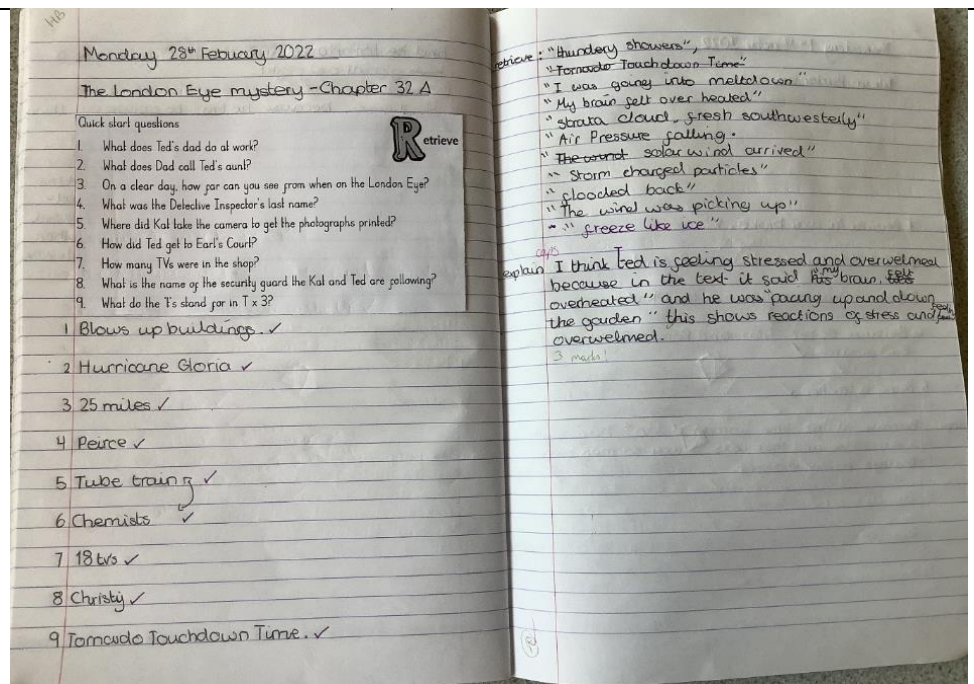 HB
Monday 28th Febuary 2022
The London Eye mystery - Chapter 32 A
Quick start questions
Retrieve
1. What does Ted's dad do at work?
2. What does Dad call Ted's aunt?
3. On a clear day, how far can you see from when on the London Eye?
4. What was the Detective Inspector's last name?
5. Where did Kat take the camera to get the photographs printed?
6. How did Ted get to Earl's Court?
7. How many TVs were in the shop?
8. What is the name of the security guard the Kat and Ted are following?
9. What do the T's stand for in T x 3?
1 Blows up buildings. ✓
2 Hurricane Gloria ✓
3 25 miles ✓
4 Peirce ✓
5 Tube train ✓
6 Chemists ✓
7 18 tvs ✓
8 Christy ✓
9 Tornado Touchdown Time. ✓
retrieve: "thundery showers",
"Tornado Touchdown Time"
"I was going into meltdown"
"My brain felt over heated"
"strata cloud, fresh southwesterly"
"Air Pressure falling.
"The wind solar wind arrived"
"Storm charged particles"
"flooded back"
"The wind was picking up"
-"freeze like ice"
explain I think Ted is feeling stressed and overwelmed
because in the text it said his my brain, felt
overheated" and he was "pacing up and down
the garden" this shows reactions of stress and
overwelmed.
3 marks!